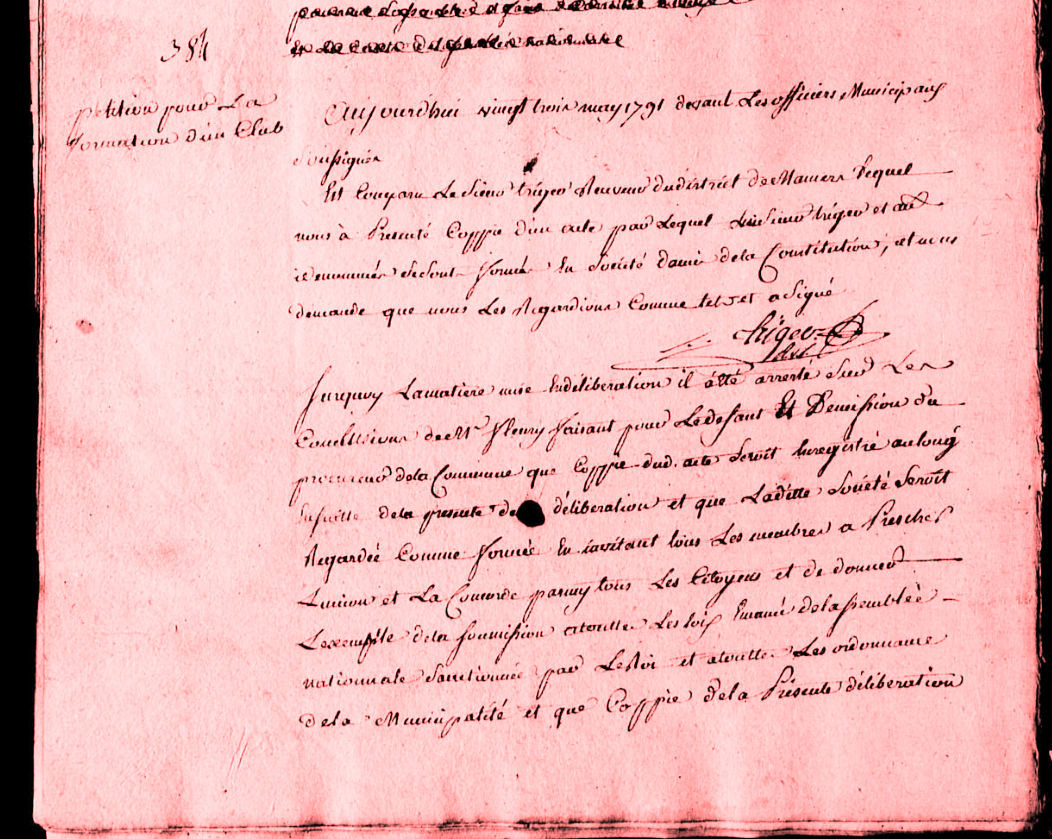 et de cette assemblée nationalle
384
petition pour La
formation d'un Club
Aujourdhui vingt trois may 1791 devant Les officiers Municipaux
soussignés
Est Comparu Le Sieur triger Receveur du district de Mamers Lequel
nous à Presenté Coppie d'un acte par Lequel Ledit Sieur triger et autres
denommés se sont formés En Societé damis de la Constitution, et nous
demande que nous Les Regardions Comme tels et a Signé
triger
Surquoy La matiere mise En déliberation il a été arresté Sur Les
Conclusions de Mr fleury faisant pour Le defaut Et Demission du
procureur de la Commune que Coppie dud. acte Seroit Enregistré au long
Ensuitte de la presente de déliberation et que Laditte Societé Seroit
Regardée Comme formée En invitant tous Les membres a Prescher
Lunion et La Concorde parmy tous Les Citoyens et de donner
Lexemple de la soumission atoutte Les lois Emané de lassemblée
nationnale Sanctionnée par Le Roi et atoutte Les ordonnance
de la Municipalité et que Coppie de la Présente déliberation